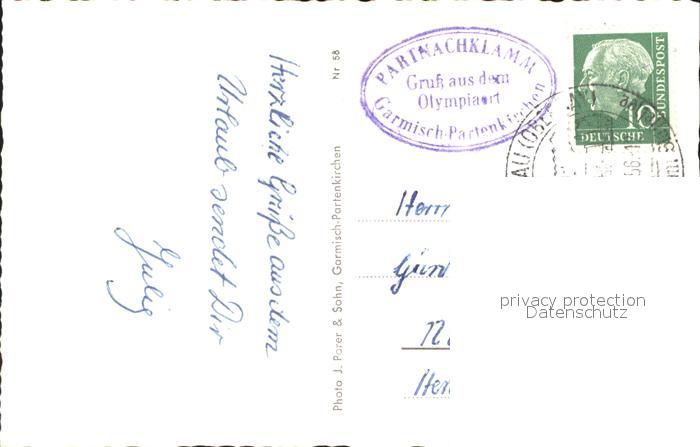 Herzliche Grüße aus dem
Urlaub sendet Dir
Nr 58
Photo J. Porer & Sohn, Garmisch-Partenkirchen
PARTNACHKLAMM
Gruß aus dem
Olympiaort
Garmisch-Partenkirchen
BUNDESPOST
10
DEUTSCHE
Herrn
privacy protection
Datenschutz